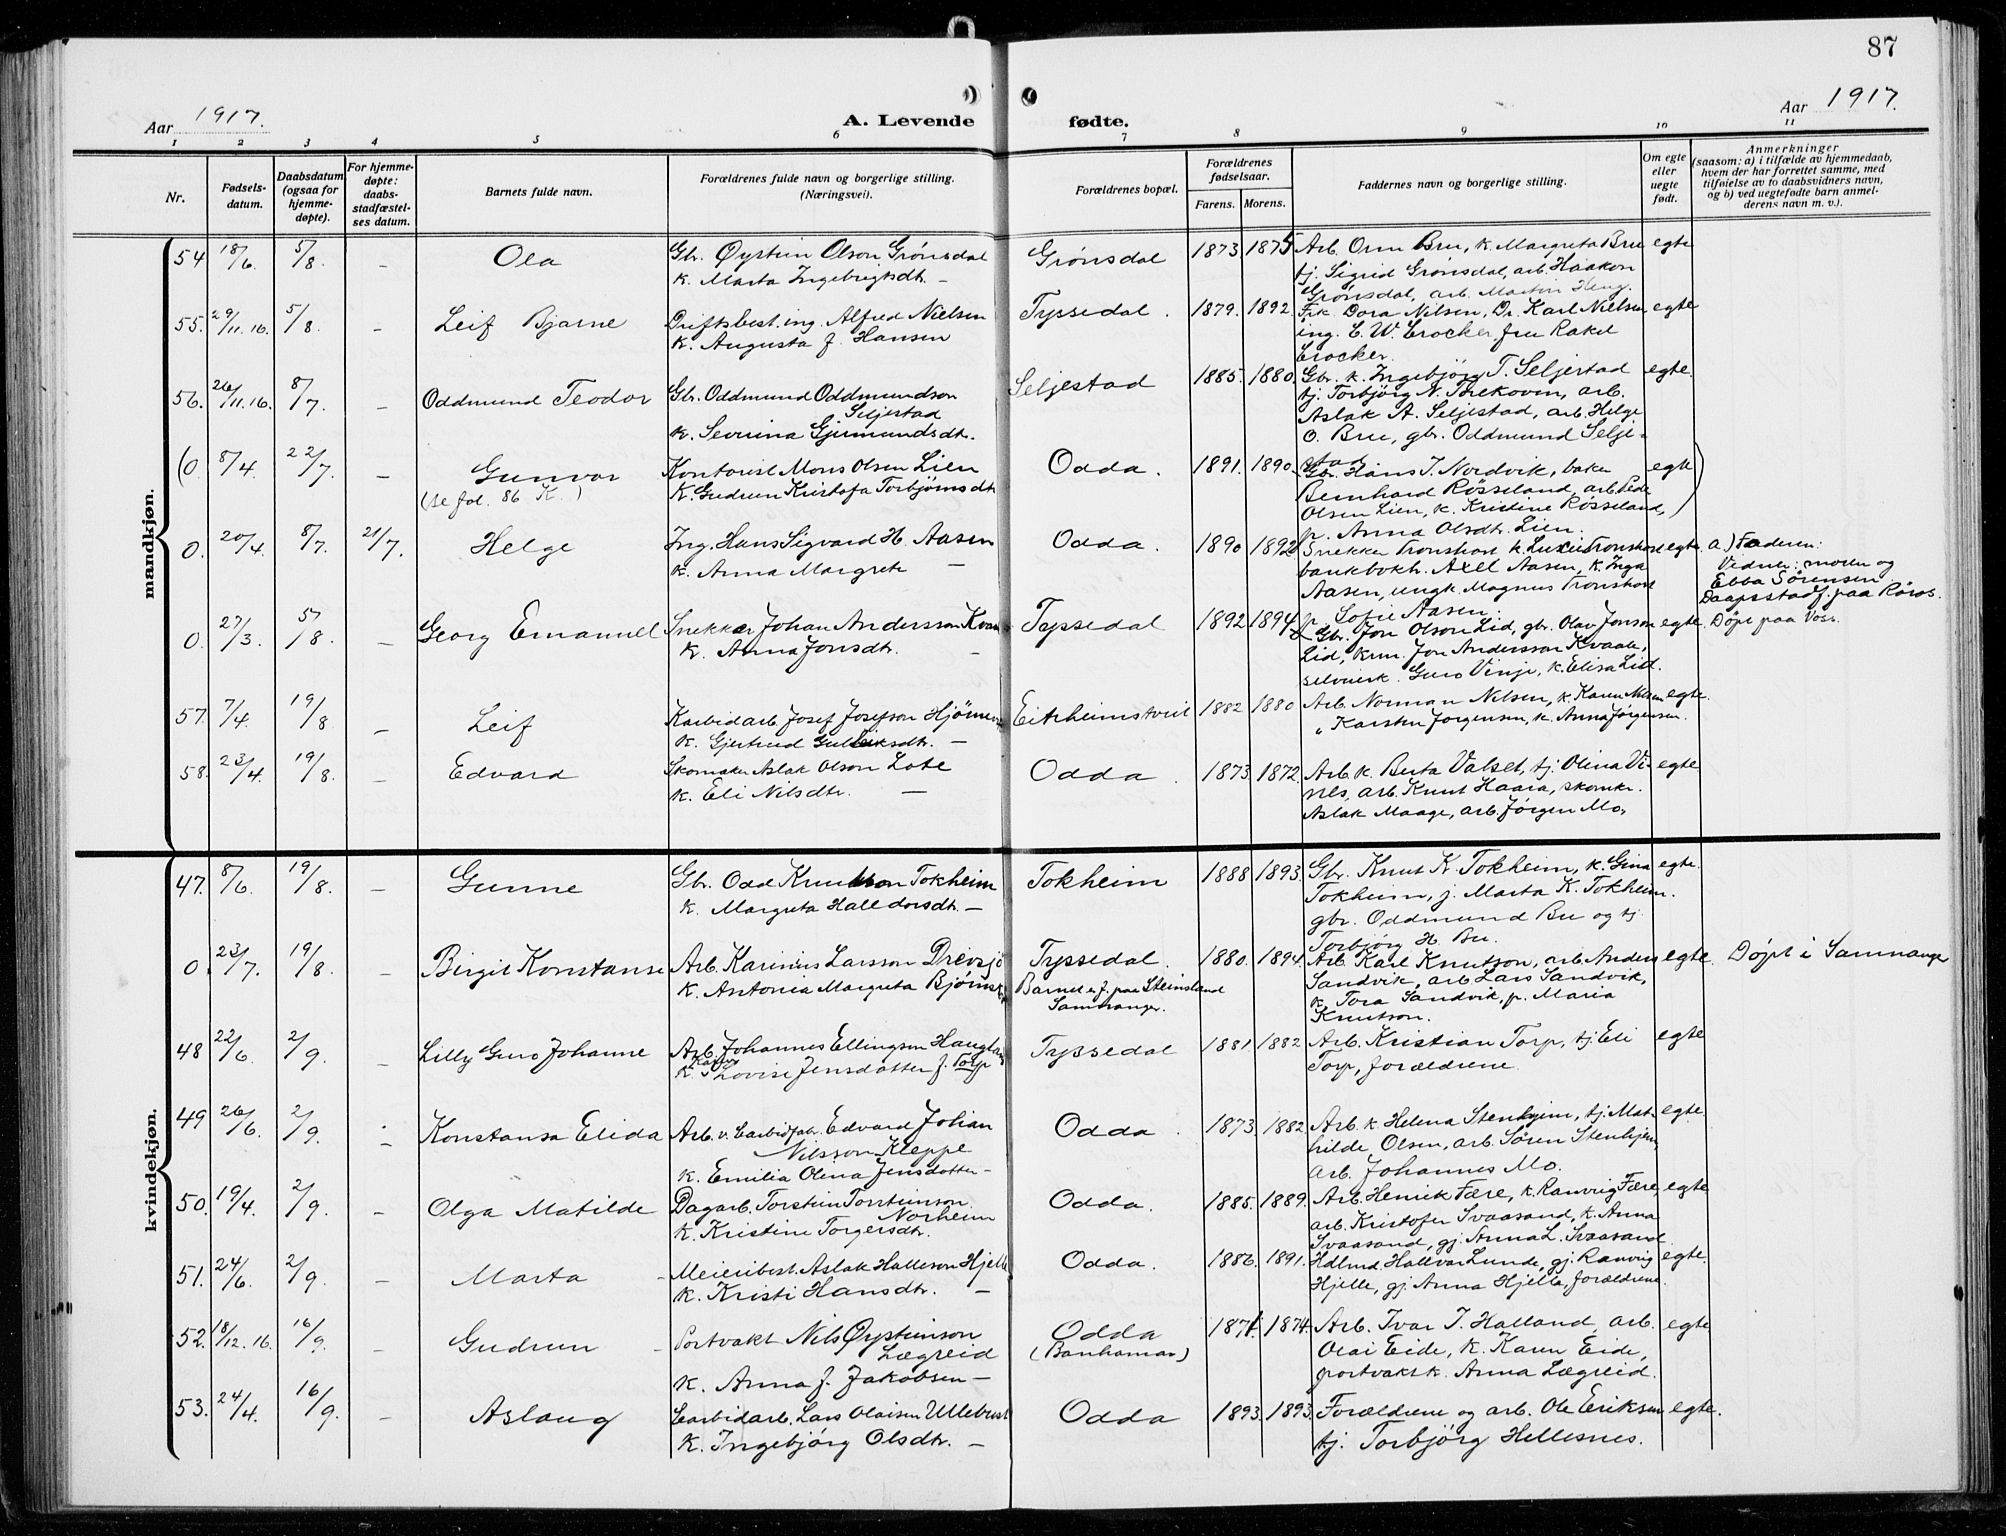 87
Aar 1917.
A. Levende fødte.
Aar 1917.
1 2 3 4 5 6 7 8 9 10 11
Nr.
Fødsels-
datum.
Daabsdatum
(ogsaa for
hjemme-
døpte).
For hjemme-
døpte:
daabs-
stadfæstel-
ses datum.
Barnets fulde navn.
Forældrenes fulde navn og borgerlige stilling.
(Næringsvei).
Forældrenes bopæl.
Forældrenes
fødselsaar.
Farens. Morens.
Faddernes navn og borgerlige stilling.
Om egte
eller
uegte
født.
Anmerkninger
(saasom: a) i tilfælde av hjemmedaab,
hvem der har forrettet samme, med
tilføielse av to daabsvidners navn,
og b) ved uegtefødte barn anmel-
derens navn m. v.).
mandkjøn.
54 18/6. 5/8. – Ola Gbr. Øystein Olson Grønsdal Grønsdal 1873 1875 Arb. Orm Bru, k. Margreta Bru egte
k. Marta Ingebrigtsdt. – tj. Sigrid Grønsdal, arb. Haakon
Grønsdal, arb. Martin Heng.
55. 29/11.16. 5/8. – Leif Bjarne Driftsbest. ing. Alfred Nielsen Tyssedal. 1879. 1892. Frk. Dora Nilsen, Dr. Karl Nielsen egte
k. Augusta f. Hansen ing. C. W. Crocker, fru Rakel
Crocker.
56. 26/11.16. 8/7. – Oddmund Teodor Gbr. Oddmund Oddmundson Seljestad 1885. 1880. Gbr. k. Ingebjørg T. Seljestad egte.
Seljestad tj. Torbjørg N. Trekovin, arb.
k. Severina Gjermundsdt. Aslak A. Seljestad, arb. Helge
O. Bru, gbr. Oddmund Selje-
stad
(0 8/4. 22/7. – Gunvor Kontorist Mons Olsen Lien Odda. 1891. 1890. Gbr. Hans J. Nordvik, baker egte)
(se fol. 86 K.) K. Gudrun Kristofa Torbjørnsdt. Bernhard Røsseland, arb. Peder
Olsen Lien, k. Kristine Røsseland,
p. Anna Olsdtr. Lien.
0. 20/4. 8/7. 21/7. Helge Ing. Hans Sigvard H. Aasen Odda. 1890 1892 Snekker Tronshart k. Tronshart egte. a) Faderen:
k. Anna Margrete – bankbokh. Axel Aasen, k. Inga Vidner: moren og
Aasen, ungk. Magnus Tronshart Ebba Sørensen
p. Sofie Aasen. Daapsstadf. paa Røros.
0. 27/3. 5/8. – Georg Emanuel Snekker Johan Andersson Tyssedal 1892 1894 Gbr. Jon Olson Lid, gbr. Olav Jonson egte. Døpt paa Voss.
k. Anna Jonsdt. – Lid, krm. Jon Andersson Kvaale,
Guro Vinje, k. Elisa Lid.
57. 7/4. 19/8. – Leif Karbidarb. Josef Josefson Eitrheimstveit 1882 1880 Arb. Norman Nilsen, k. Karen Nilsen egte.
k. Gjertrud Gulleiksdtr. – „ Karsten Jørgensen, k. Anna Jørgensen.
58. 23/4. 19/8. – Edvard Skomaker Aslak Olson Lote Odda. 1873. 1872. Arb. k. Berta Valset, tj. Olina Vi- egte
k. Eli Nilsdtr. – nes, arb. Knut Haara, skomkr.
Aslak Maage, arb. Jørgen Mo.
kvindekjøn.
47. 8/6. 19/8. – Gunne Gbr. Odd Knutson Tokheim Tokheim 1888 1893. Gbr. Knut K. Tokheim, k. Gina egte.
k. Margreta Halldorsdt. – Tokheim, j. Marta K. Tokheim.
gbr. Oddmund Bu og tj.
Torbjørg H. Bu.
0. 23/7. 19/8. – Birgit Konstanse Arb. Karinius Larsson Drevsjø Tyssedal. 1880. 1894. Arb. Karl Knutson, arb. Anders egte. Døpt i Samnanger
k. Antonia Margreta Barnet e. f. paa Steinsland Sandvik, arb. Lars Sandvik,
Samnanger. k. Tora Sandvik, p. Maria
Knutson.
48 22/6. 2/9. – Lilly Guro Johanne Arb. Johannes Ellingson Haugland Tyssedal 1881. 1882 Arb. Kristian Torp, tj. Eli egte
k. Lovise Jensdotter f. Torp Torp, forældrene.
49 26/6. 2/9. – Konstansa Elida Arb. v. Carbidfabr. Edvard Johan Odda. 1873. 1882. Arb. k. Helena Stenhjem, tj. Mat- egte.
Nilsson Kleppe hilde Olsen, arb. Søren Stenhjem,
k. Emilia Olina Jensdotter – arb. Johannes Mo.
50. 19/4. 2/9. – Olga Matilde Dagarb. Torstein Torsteinson Odda. 1885. 1889. Arb. Henrik Fære, k. Ranveig Fære, egte
Norheim arb. Kristofer Svaasand, k. Anna
k. Kristine Torgersdt. Svaasand, gj. Anna L. Svaasand
51. 24/6. 2/9. – Marta Meieribest. Aslak Halleson Hjelle Odda. 1886. 1891. Hdlmd. Hallvar Lunde, gj. Ranveig egte.
k. Kristi Hansdt. – Hjelle, gj. Anna Hjelle, forældrene.
52. 18/12.16. 16/9. Gudrun – Portvakt Nils Øysteinson Odda 1871. 1874. Arb. Ivar J. Halland, arb. egte
Lægreid (Banhamar) Olai Eide, k. Karen Eide,
k. Anna f. Jakobsen – portvakt k. Anna Lægreid.
53. 24/4. 16/9. – Aslaug Carbidarb. Lars Olaisen Ullebust Odda 1893. 1893. Forældrene og arb. Ole Eriksen egte.
k. Ingebjørg Olsdtr. – tj. Torbjørg Hellesnes.